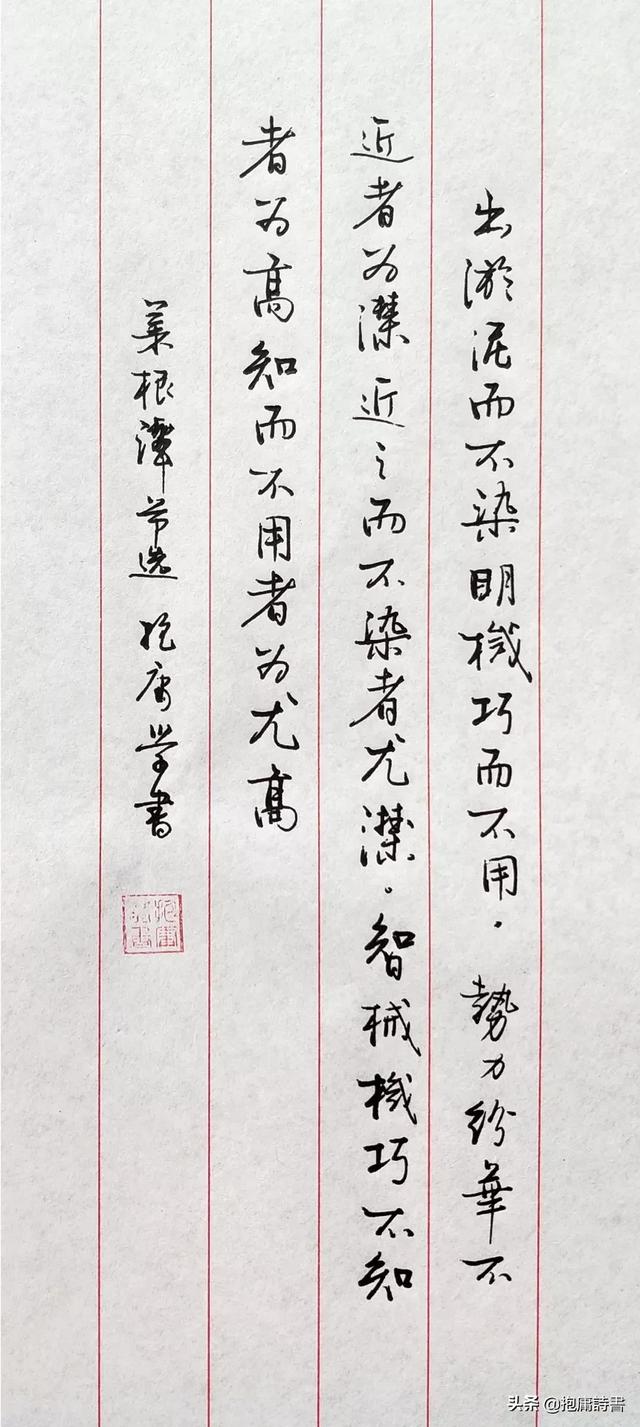 出淤泥而不染明機巧而不用。勢力紛華不
近者为潔近之而不染者尤潔。智械機巧不知
者为高知而不用者为尤高
菜根譚节选 抱庸学書
抱庸学書
头条 @抱庸詩書